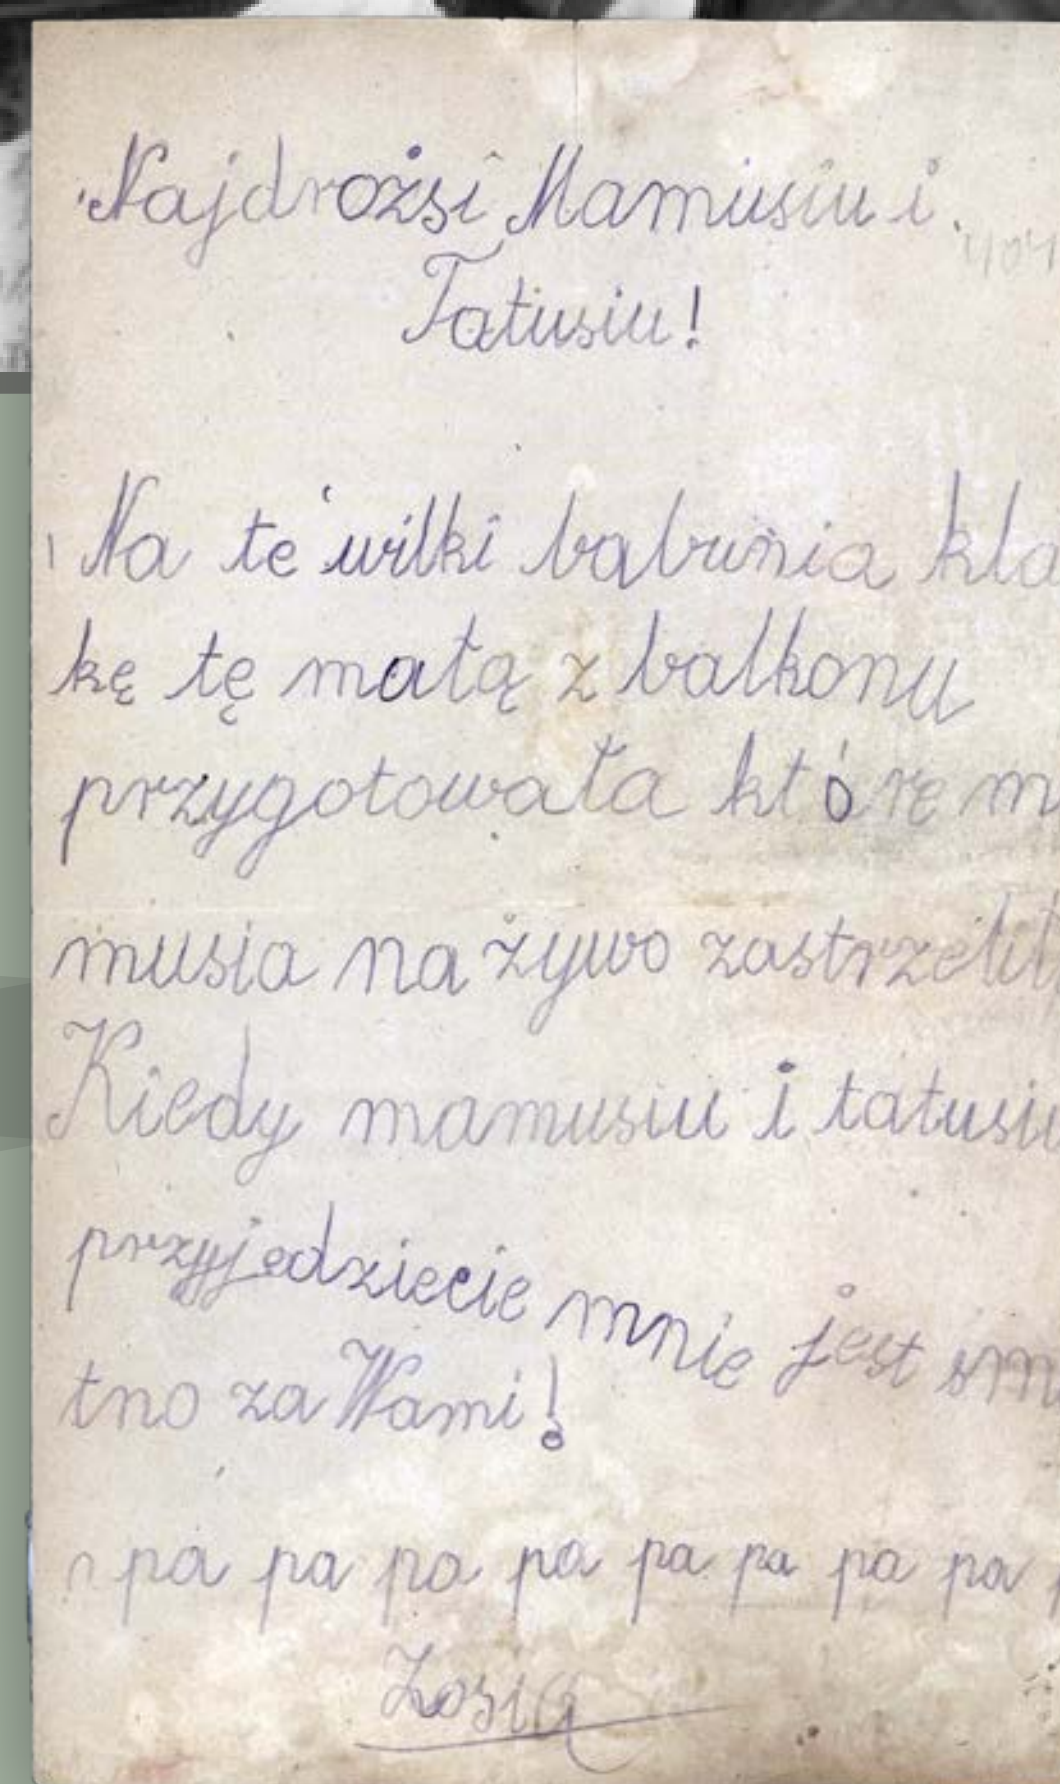 Najdrożsi Mamusiu i
Tatusiu!
Na te wilki babunia kla
kę tę małą z balkonu
przygotowała które m
musia na żywo zastrzelił
Kiedy mamusiu i tatusiu
przyjedziecie mnie jest sm
tno za Wami!
pa pa pa pa pa pa pa pa
Zosia